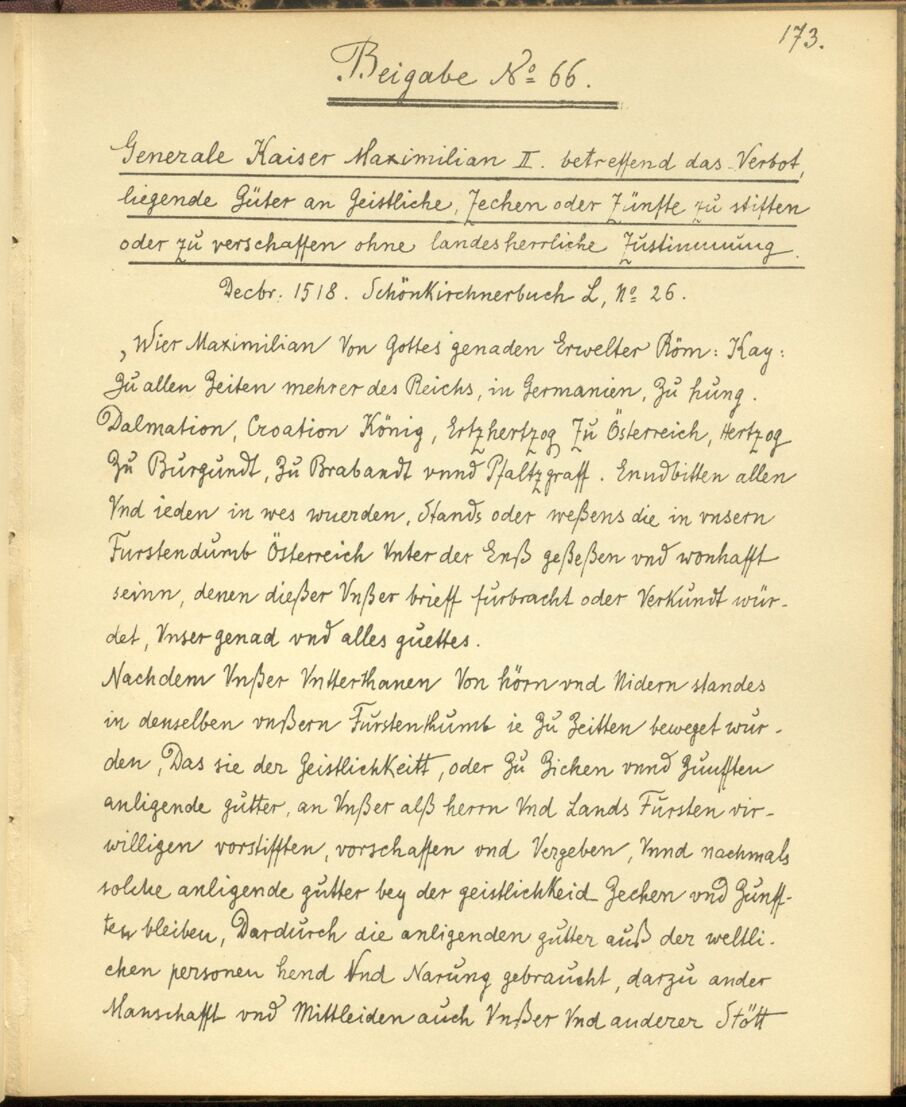 173.
Beigabe No 66.
Generale Kaiser Maximilian II. betreffend das Verbot,
liegende Güter an Geistliche, Zechen oder Zünfte zu stiften
oder zu verschaffen ohne landesherrliche Zustimmung.
Decbr. 1518. Schönkirchnerbuch L, No 26.
„Wier Maximilian Von Gottes genaden Erwelter Röm: Kay:
Zu allen Zeiten mehrer des Reichs, in Germanien, Zu hung.
Dalmation, Croation König, Ertzhertzog Zu Österreich, Hertzog
Zu Burgundt, Zu Brabandt vnnd Pfaltzgraff. Enudbitten allen
Vnd ieden in wes wuerden, Stands oder weßens die in vnsern
Furstendumb Österreich Vnter der Enß geßeßen vnd wonhafft
seinn, denen dießer Vnßer brieff furbracht oder Verkundt wür-
det, Vnser genad vnd alles guettes.
Nachdem Vnßer Vntterthanen Von hörn vnd Nidern standes
in denselben vnßern Furstenthumb ie Zu Zeitten beweget wur-
den, Das sie der Geistlichkeitt, oder Zu Zichen vnnd Zunfften
anligende gutter, an Vnßer alß herrn Vnd Lands Fursten vir-
willigen vorstifften, vorschaffen vnd Vergeben, Vnnd nachmals
solche anligende gutter bey der geistlichkeid Zechen vnd Zunff-
ten bleiben, Dardurch die anligenden gutter auß der weltli-
chen personen hend Vnd Narung gebraucht, darzu ander
Manschafft vnd Mittleiden auch Vnßer Vnd anderer Stött